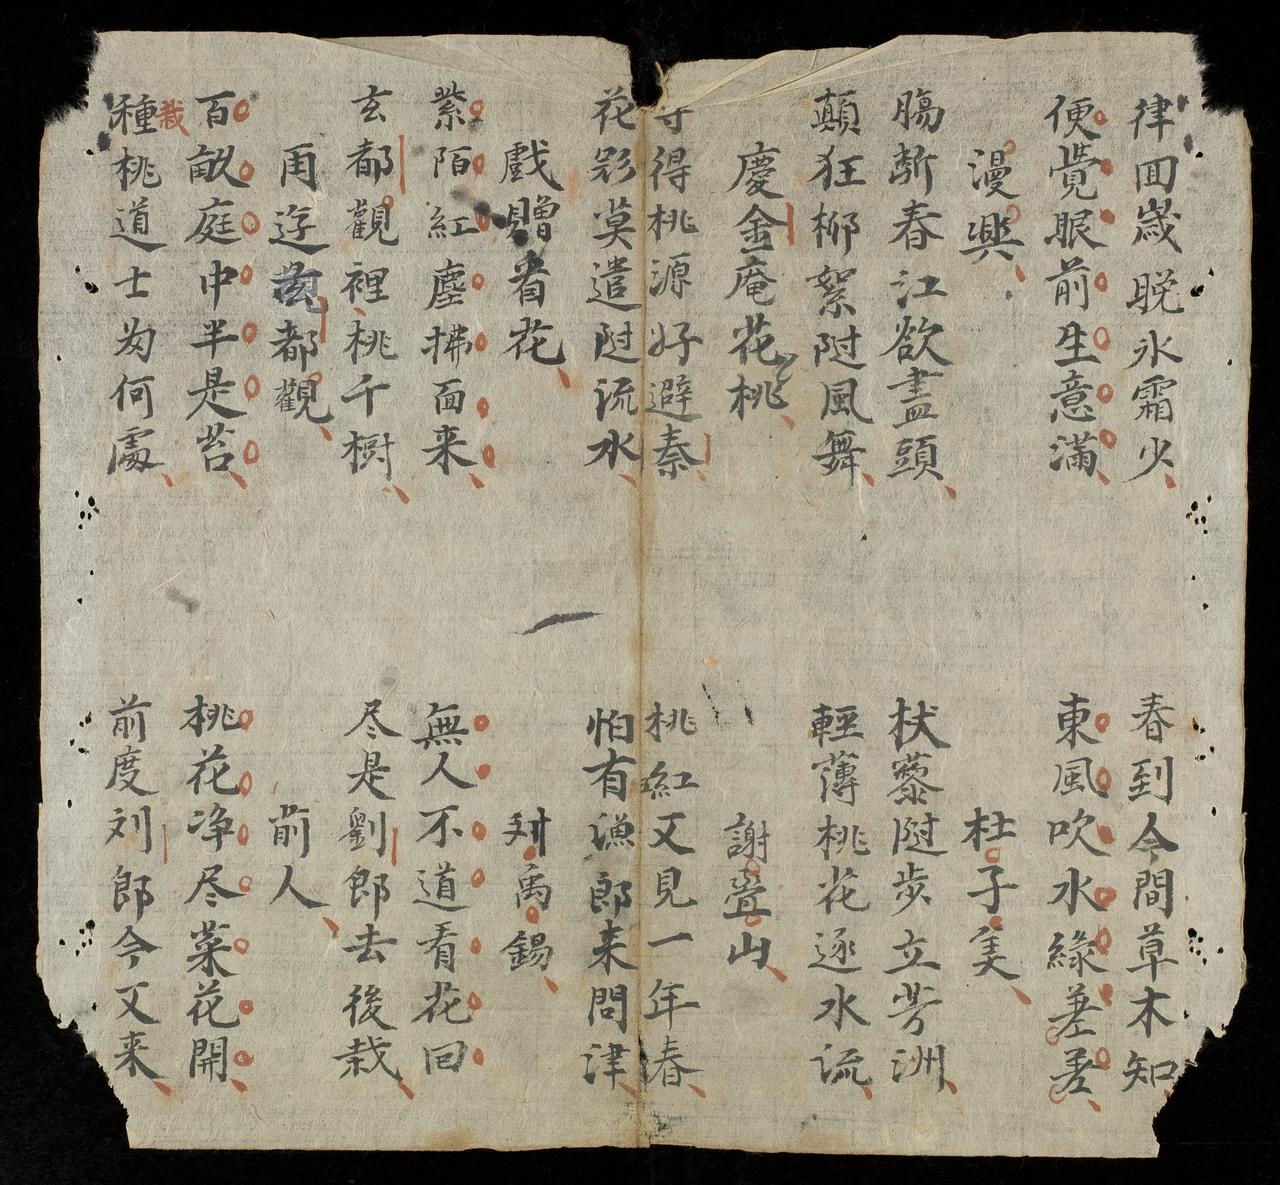 律回歲晚氷霜少
春到今間草木知
便覺眼前生意滿
東風吹水緑差差
漫興
杜子美
腸斷春江欲盡頭
杖藜随步立芳洲
顛狂桺絮随風舞
輕薄桃花逐水流
慶金庵花桃
謝疊山
寻得桃源好避秦
桃紅又見一年春
花影莫遣随流水
怕有漁郎来問津
戲贈看花
刘禹錫
紫陌紅塵拂面来
無人不道看花回
玄都觀裡桃千樹
尽是劉郎去後栽
再遊玄都觀
前人
百畝庭中半是苔
桃花净尽菜花開
種桃道士为何處
栽
前度刘郎今又来